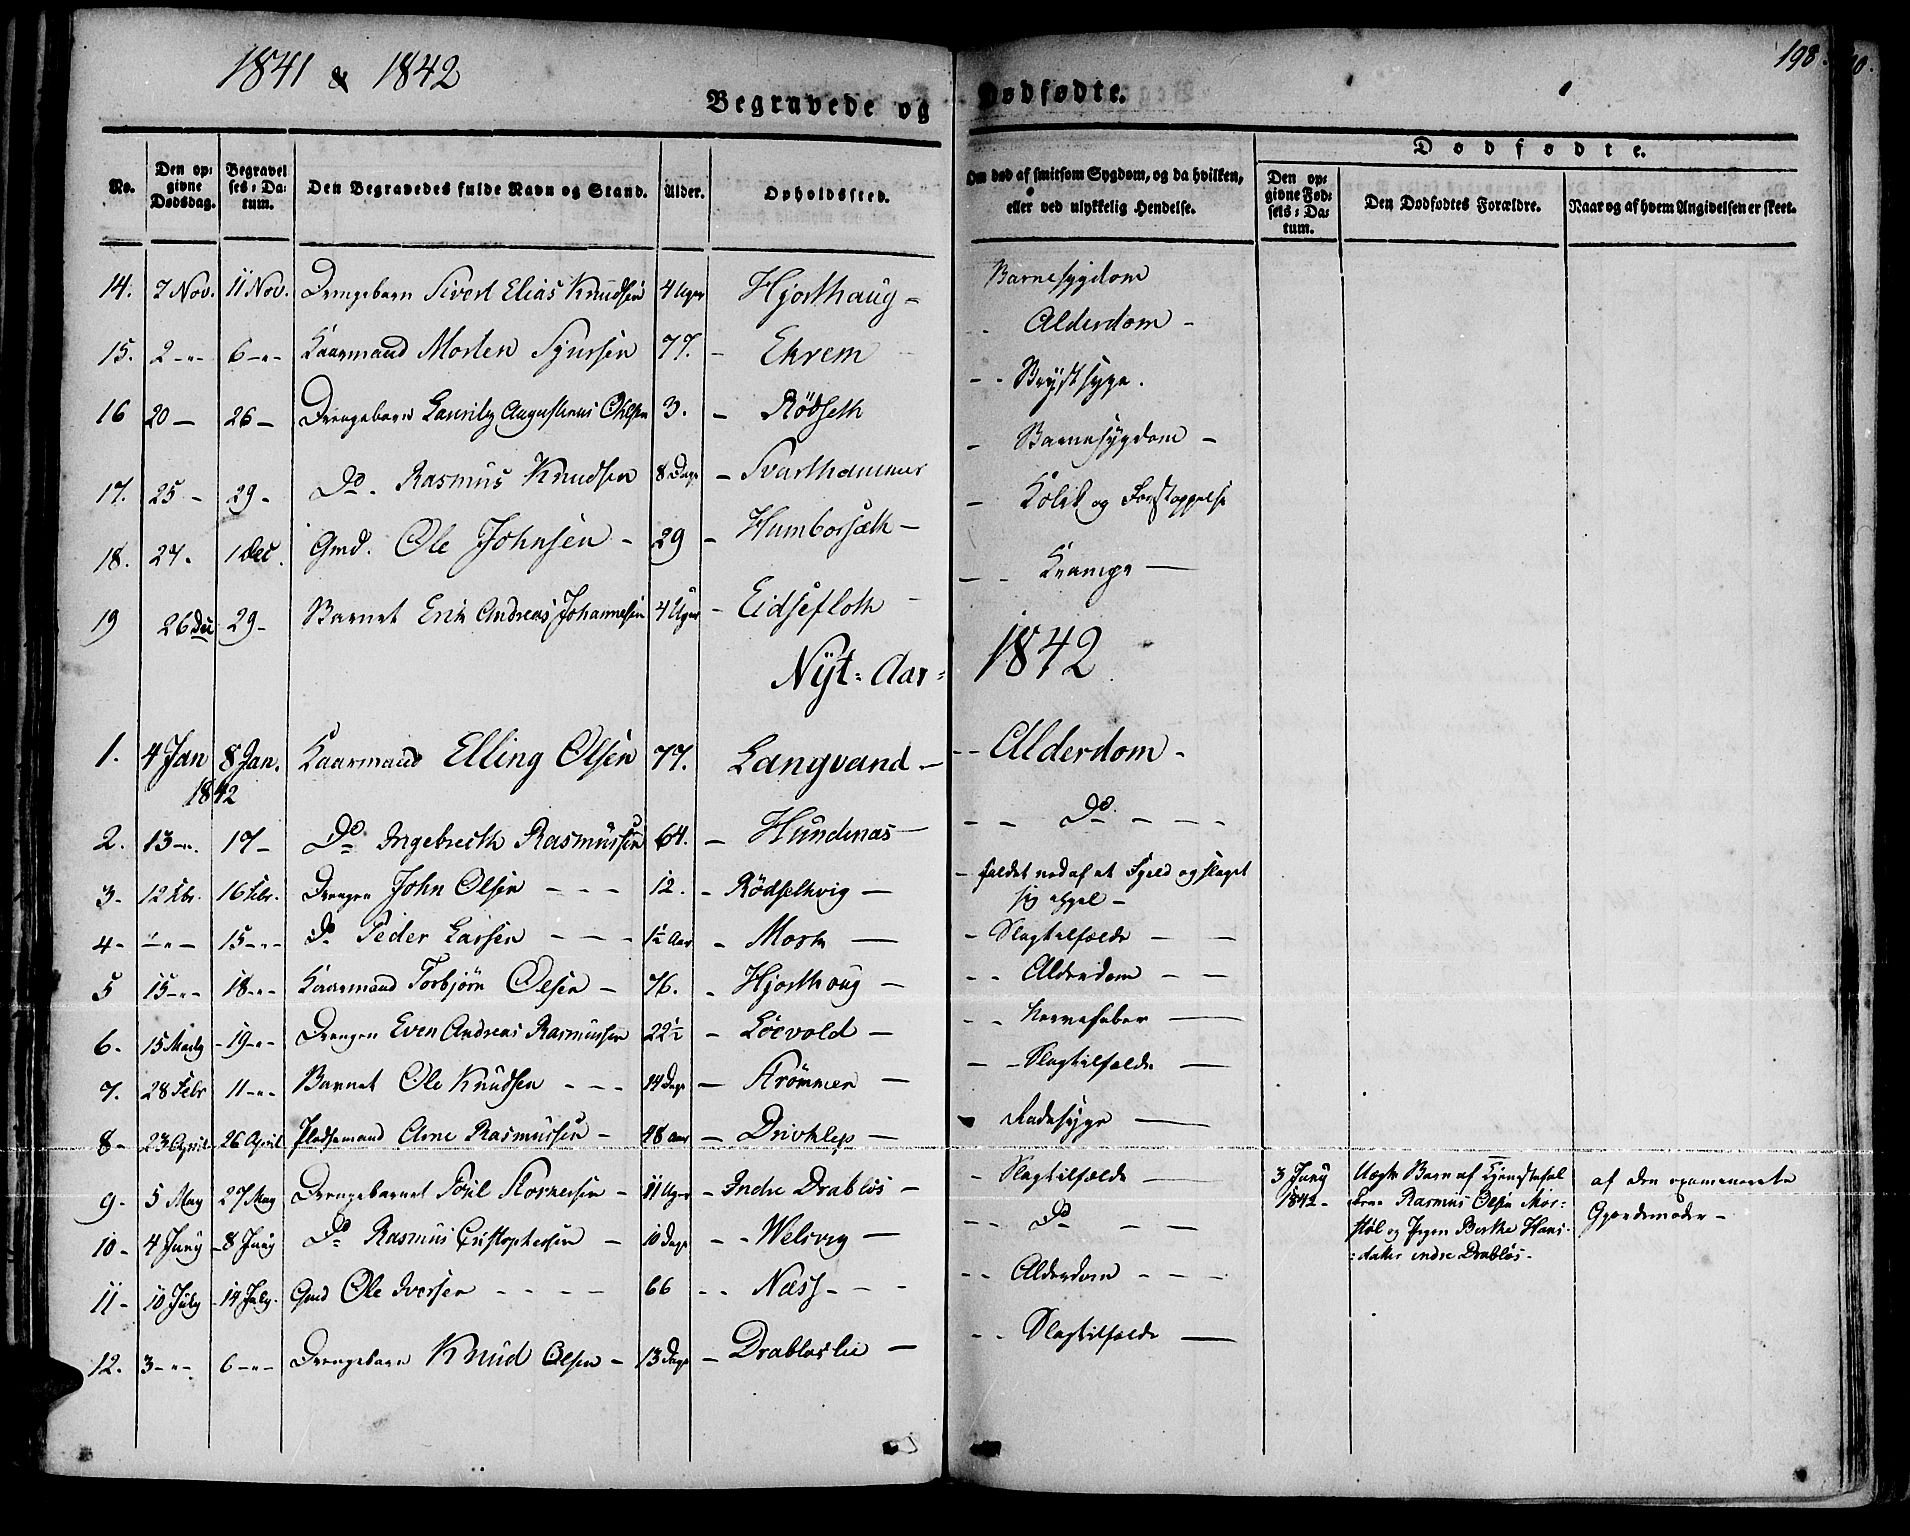 1841 & 1842
198.
Begravede og Dødfødte.
No. | Den opgivne Dødsdag. | Begravelses-Datum. | Den Begravedes fulde Navn og Stand. | Alder. | Opholdssted. | Om død af smitsom Sygdom, og da hvilken, eller ved ulykkelig Hendelse. | Dødfødte. Den opgivne Fødsels-Datum. | Den Dødfødtes Forældre. | Naar og af hvem Angivelsen er skeet.
14. | 7 Nov. | 11 Nov. | Drengebarn Sivert Elias Knudsen | 4 Uger | Hjorthaug - | Barnesygdom
15. | 2 -"- | 6 -"- | Kaarmand Morten Sjursen | 77. | - Ekrem | - - Alderdom -
16 | 20 - | 26 - | Drengebarn Lauritz Augustinus Ohlsen | 3. | - Rödseth | - - Brystsyge.
17. | 25 - | 29 - | Do. Rasmus Knudsen | 8 Dage | - Svarthammer | - Barnesygdom -
18. | 27. | 1 Dec. | Gmd. Ole Johnsen - | 29 | - Humborsæth - | - Kolik og Forstoppelse
19 | 26 Dec | 29 - | Barnet Erik Andreas Johannesen | 4 Uger | - Eidsefloth - | - - Krampe -
Nÿt-Aar- 1842
1. | 4 Jan 1842 | 8 Jan. | Kaarmand Elling Olsen | 77. | Langvand - | - - Alderdom -
2. | 13 -"- | 17 - | Do. Ingebrecth Rasmussen | 64. | - Hundenæs - | - - Do. - - -
3 - | 12 Fbr. | 16 Fbr. | Drengen John Olsen - - - | 12. | - Rödsethvig - | - faldet ned af et Fjeld og slaget sig ihjel -
4 - | - " - | 15 -"- | Do Peder Larsen - - - | 1½ Aar | - Mork - | - Slagtilfælde - -
5 | 15 -"- | 18 -"- | Kaarmand Torbjörn Olsen - | 76. | - Hjorthoug - | - - Alderdom - -
6 - | 15 Marty | - 19 -"- | Drengen Even Andreas Rasmussen | 22½ | - Löevold - | - - Nervefeber -
7. | 28 Febr | 11 -"- | Barnet Ole Knudsen - - - | 14 Dage | - Strömmen - | - - Slagtilfælde -
8 - | 23 April | 26 April | Pladsemand Arne Rasmussen - | 48 Aar | - Drivklep - | - Radesyge -
9 - | 5 May | 27 May | Drengebarnet Poul Kornelsen - | 11 Uger | - Indre Drablös - | - Slagtilfælde - | 3 Juny 1842 - | Uægte Barn af Rasmus Olsen Mor-støl og Pigen Berthe Hans-datter indre Drablös - | af den examinerete Gjordemoder -
10 - | 4 Juny | - 8 Juny | Do Rasmus Cristophersen - | 10 Dage | - - Welsvig - | - - Do - -
11 - | 10 July | - 14 July. | Gmd Ole Iversen - - - - | 66 | - - Næss - - - | - - Alderdom - - -
12. | 3 -"- | 6 -"- | Drengebarn Knud Olsen - | 13 Dage | - Drabløslie - | - - Slagtilfælde -